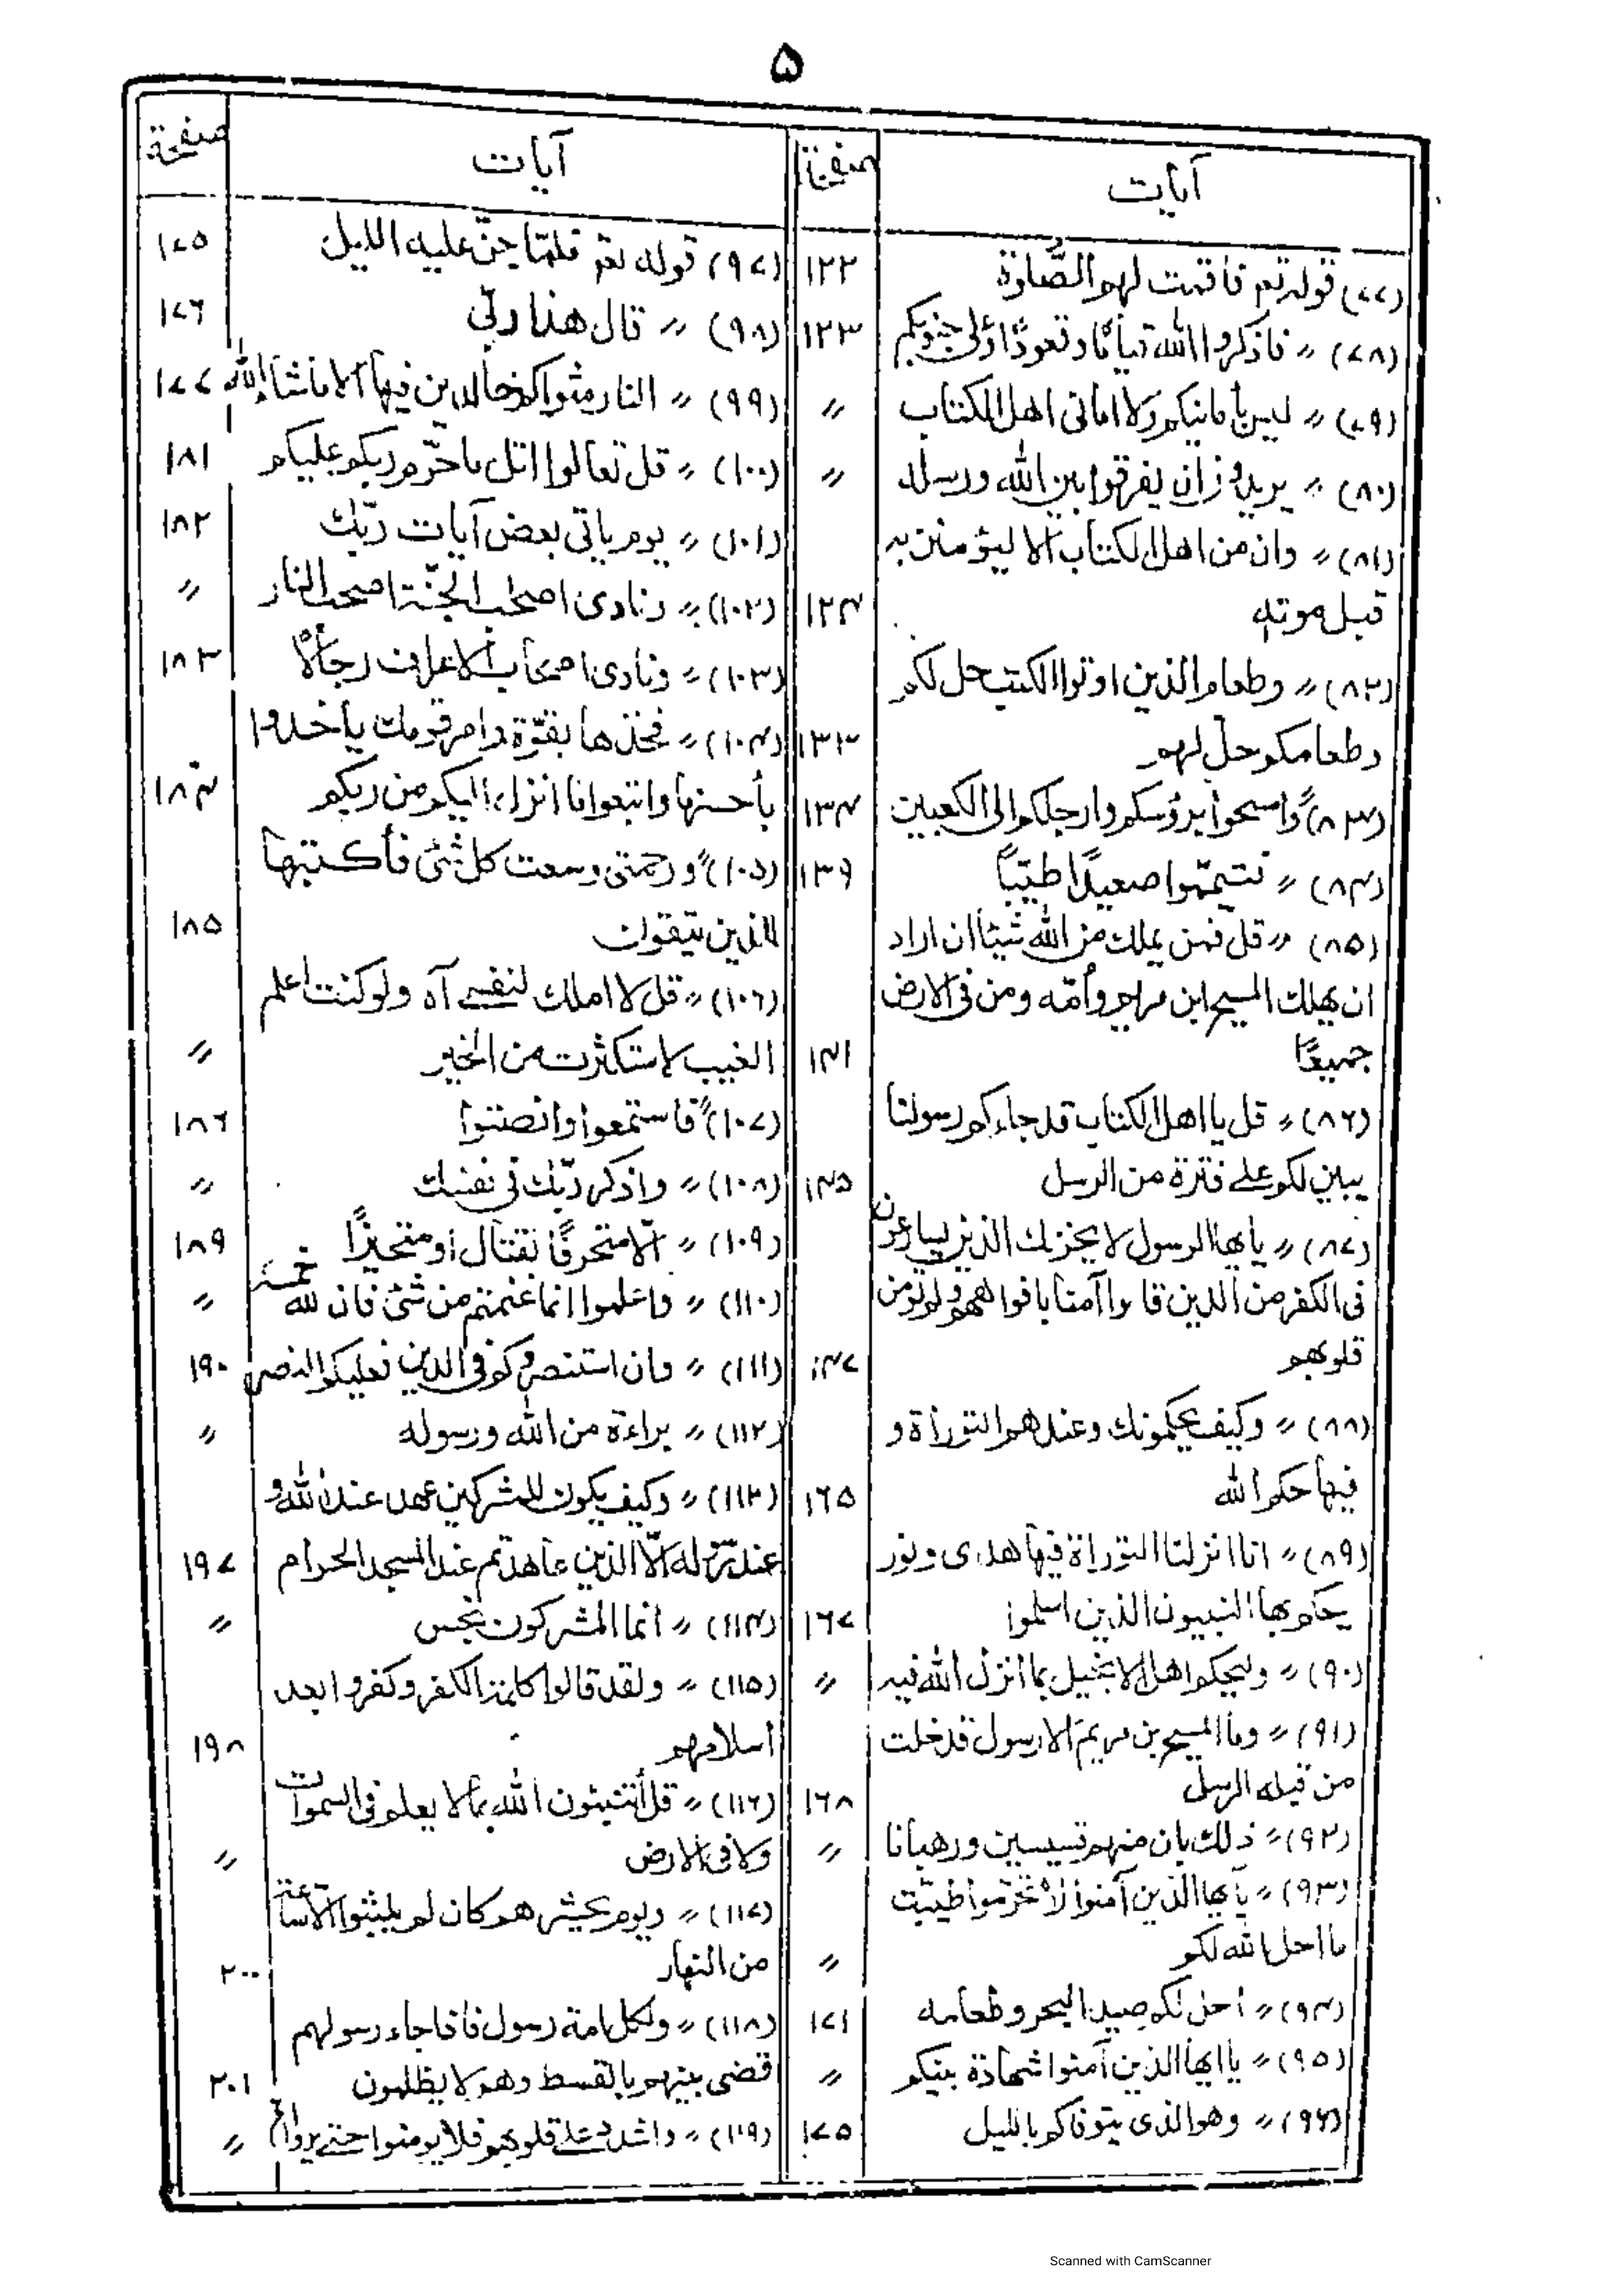 ۵
آیات
صفحة
(۷۷) قوله تعم فاقمت لهم الصّلوٰة ۱۲۲
(۷۸) 〃 فاذکروا الله قیاما وقعودًا وعلی جنوبکم ۱۲۳
(۷۹) 〃 لیس بأمانیکم ولا امانی اهل الکتاب 〃
(۸۰) 〃 یریدون ان یفرقوا بین الله ورسله 〃
(۸۱) 〃 وان من اهل الکتاب الا لیؤمنن به
قبل موته ۱۲۴
(۸۲) 〃 وطعام الذین اوتوا الکتب حل لکم
وطعامکم حلّ لهم ۱۳۳
(۸۳) 〃 وامسحوا برؤسکم وارجلکم الی الکعبین ۱۳۴
(۸۴) 〃 فتیمّموا صعیدًا طیّبًا ۱۳۹
(۸۵) 〃 قل فمن یملك من الله شیئا ان اراد
ان یهلك المسیح ابن مریم وأمّه ومن فی الارض
جمیعًا ۱۴۱
(۸۶) 〃 قل یا اهل الکتاب قد جاءکم رسولنا
یبین لکم علی فترة من الرسل ۱۴۵
(۸۷) 〃 یأیها الرسول لا یحزنك الذین یسارعون
فی الکفر من الذین قالوا آمنا بافواههم ولم تؤمن
قلوبهم ۱۴۷
(۸۸) 〃 وکیف یحکمونك وعندهم التوراة و
فیها حکم الله ۱۶۵
(۸۹) 〃 انا انزلنا التوراة فیها هدی ونور
یحکم بها النبیون الذین اسلموا ۱۶۷
(۹۰) 〃 ولیحکم اهل الانجیل بما أنزل الله فیه 〃
(۹۱) 〃 وما المسیح بن مریم الا رسول قد خلت
من قبله الرسل ۱۶۸
(۹۲) 〃 ذلك بان منهم قسیسین ورهبانا 〃
(۹۳) 〃 یأیها الذین آمنوا لا تحرّموا طیبٰت
ما احل الله لکم 〃
(۹۴) 〃 أحل لکم صید البحر وطعامه ۱۷۱
(۹۵) 〃 یا ایها الذین آمنوا شهادة بینکم 〃
(۹۶) 〃 وهو الذی یتوفاکم باللیل ۱۷۵
آیات
صفحة
(۹۷) قوله تعم فلمّا جنّ علیه اللیل ۱۷۵
(۹۸) 〃 قال هذا ربّی ۱۷۶
(۹۹) 〃 النار مثواکم خالدین فیها الا ما شاء الله ۱۷۷
(۱۰۰) 〃 قل تعالوا اتل ما حرّم ربکم علیکم ۱۸۱
(۱۰۱) 〃 یوم یاتی بعض آیات ربّك ۱۸۲
(۱۰۲) 〃 ونادی اصحٰب الجنّة اصحٰب النار 〃
(۱۰۳) 〃 ونادی اصحاب الاعراف رجالًا ۱۸۳
(۱۰۴) 〃 فخذها بقوّة وامر قومك یأخذوا
بأحسنها واتبعوا ما انزل الیکم من ربکم ۱۸۴
(۱۰۵) 〃 ورحمتی وسعت کل شئ فأکتبها
للذین یتقون ۱۸۵
(۱۰۶) 〃 قل لا املك لنفسی آه ولو کنت اعلم
الغیب لاستکثرت من الخیر 〃
(۱۰۷) 〃 فاستمعوا وانصتوا ۱۸۶
(۱۰۸) 〃 واذکر ربّك فی نفسك 〃
(۱۰۹) 〃 الّا متحرفًا لقتال أو متحیزًا ۱۸۹
(۱۱۰) 〃 واعلموا انما غنمتم من شئ فان لله خمسه 〃
(۱۱۱) 〃 وان استنصروکم فی الدین فعلیکم النصر ۱۹۰
(۱۱۲) 〃 براءة من الله ورسوله 〃
(۱۱۳) 〃 وکیف یکون للمشرکین عهد عند الله و
عند رسوله الّا الذین عاهدتم عند المسجد الحرام ۱۹۷
(۱۱۴) 〃 انما المشرکون نجس 〃
(۱۱۵) 〃 ولقد قالوا کلمة الکفر وکفروا بعد
اسلامهم ۱۹۸
(۱۱۶) 〃 قل أتنبئون الله بما لا یعلم فی السموات
ولا فی الارض 〃
(۱۱۷) 〃 ویوم یحشرهم کان لم یلبثوا الا ساعة
من النهار ۲۰۰
(۱۱۸) 〃 ولکل امة رسول فاذا جاء رسولهم
قضی بینهم بالقسط وهم لا یظلمون ۲۰۱
(۱۱۹) 〃 واشدد علی قلوبهم فلا یؤمنوا حتی یروا 〃
Scanned with CamScanner